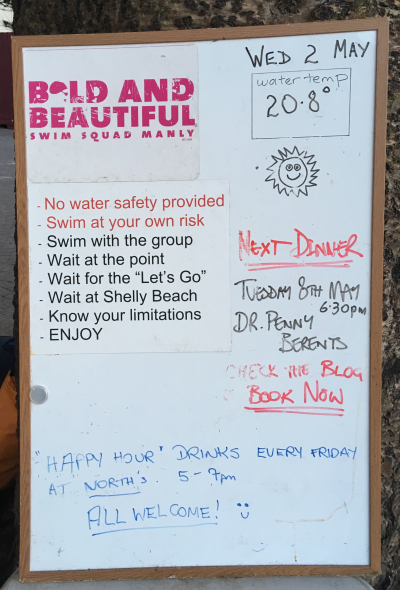 BOLD AND
BEAUTIFUL
SWIM SQUAD MANLY
WED 2 MAY
water temp
20.8°
- No water safety provided
- Swim at your own risk
- Swim with the group
- Wait at the point
- Wait for the “Let's Go”
- Wait at Shelly Beach
- Know your limitations
- ENJOY
NEXT DINNER
TUESDAY 8TH MAY
6:30pm
DR. PENNY
BERENTS
CHECK THE BLOG
BOOK NOW
"HAPPY HOUR" DRINKS EVERY FRIDAY
AT NORTH'S. 5-7pm
ALL WELCOME!